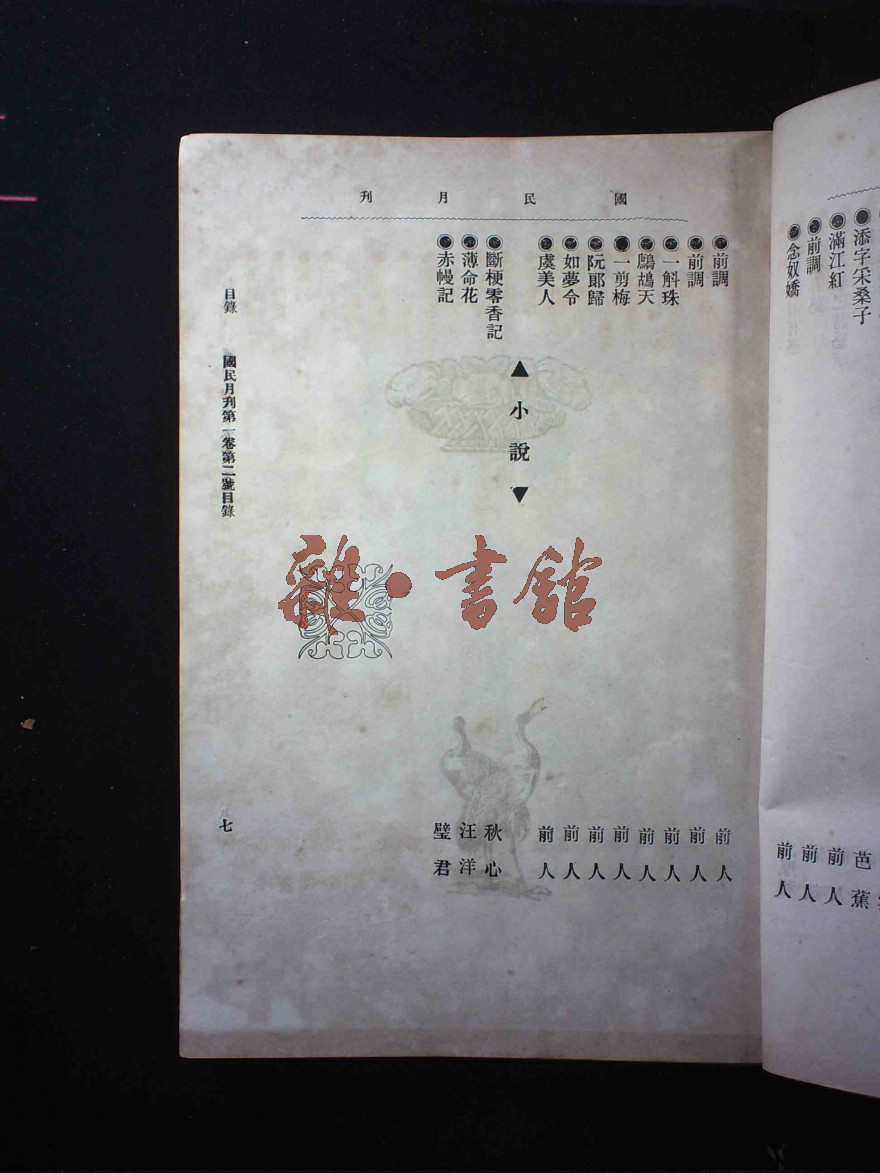 添字采桑子 芭蕉
滿江紅 前人
前調 前人
念奴嬌 前人
國民月刊
前調 前人
前調 前人
一斛珠 前人
鷓鴣天 前人
一剪梅 前人
阮郎歸 前人
如夢令 前人
虞美人 前人
▲小說▼
斷梗零香記 秋心
薄命花 汪洋
赤幔記 璧君
目錄 國民月刊第一卷第二號目錄 七
雜·書館